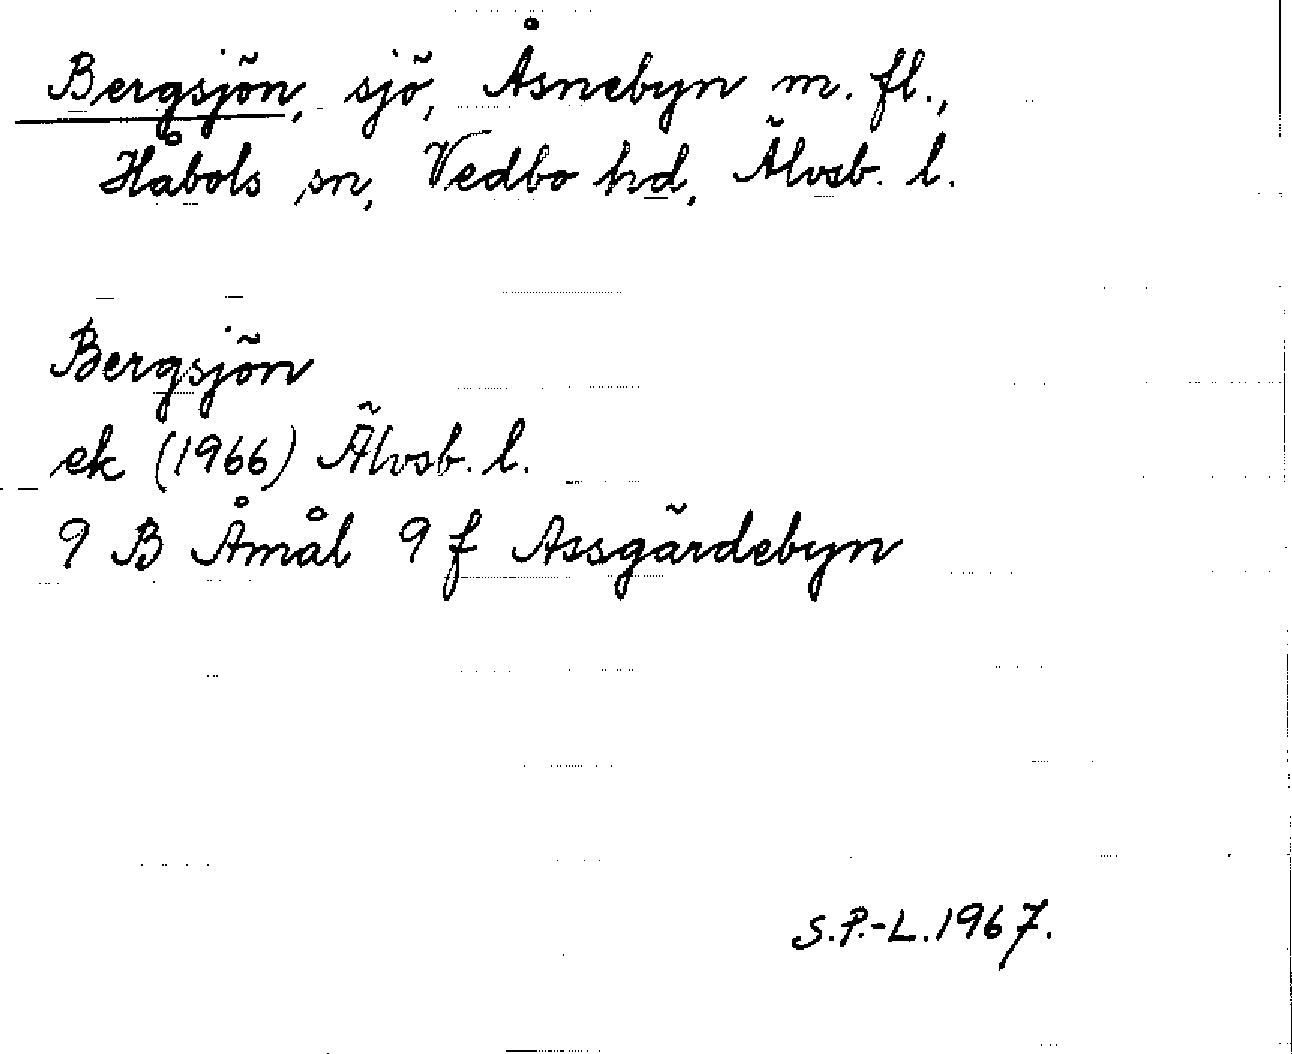 Bergsjön, sjö, Åsnebyn m. fl.,
Håbols sn, Vedbo hd, Älvsb. l.
Bergsjön
ek (1966) Älvsb. l.
9 B Åmål 9 f Assgärdebyn
S.P.-L. 1967.